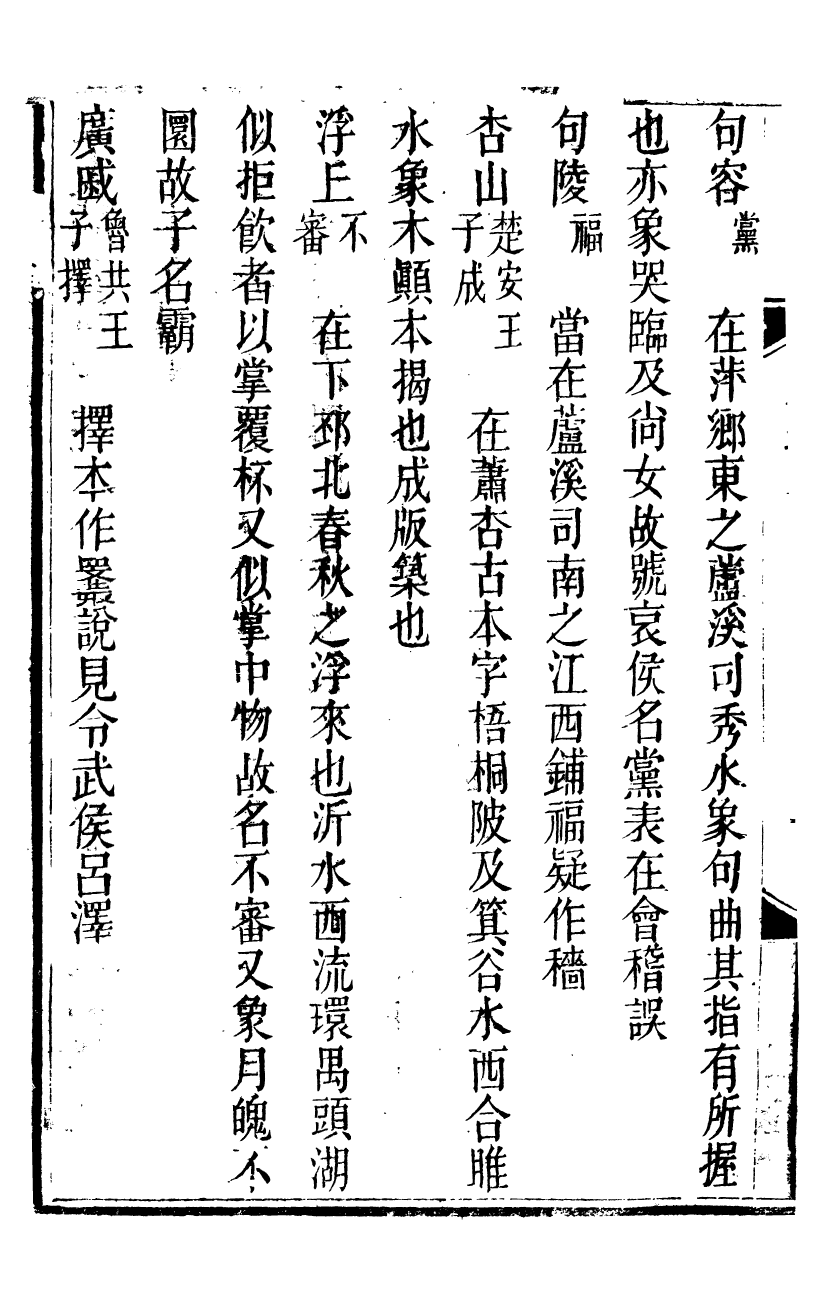 句容黨 在萍鄉東之蘆溪司秀水象句曲其指有所握
也亦象哭臨及尙女故號哀侯名黨表在會稽誤
句陵福 當在蘆溪司南之江西鋪福疑作穡
杏山楚安王子成 在蕭杏古本字梧桐陂及箕谷水西合睢
水象木顚本揭也成版築也
浮丘不審 在下邳北春秋之浮來也沂水西流環禺頭湖
似拒飮者以掌覆杯又似掌中物故名不審又象月魄不
圜故子名霸
廣戚魯共王子擇 擇本作睪說見令武侯呂澤